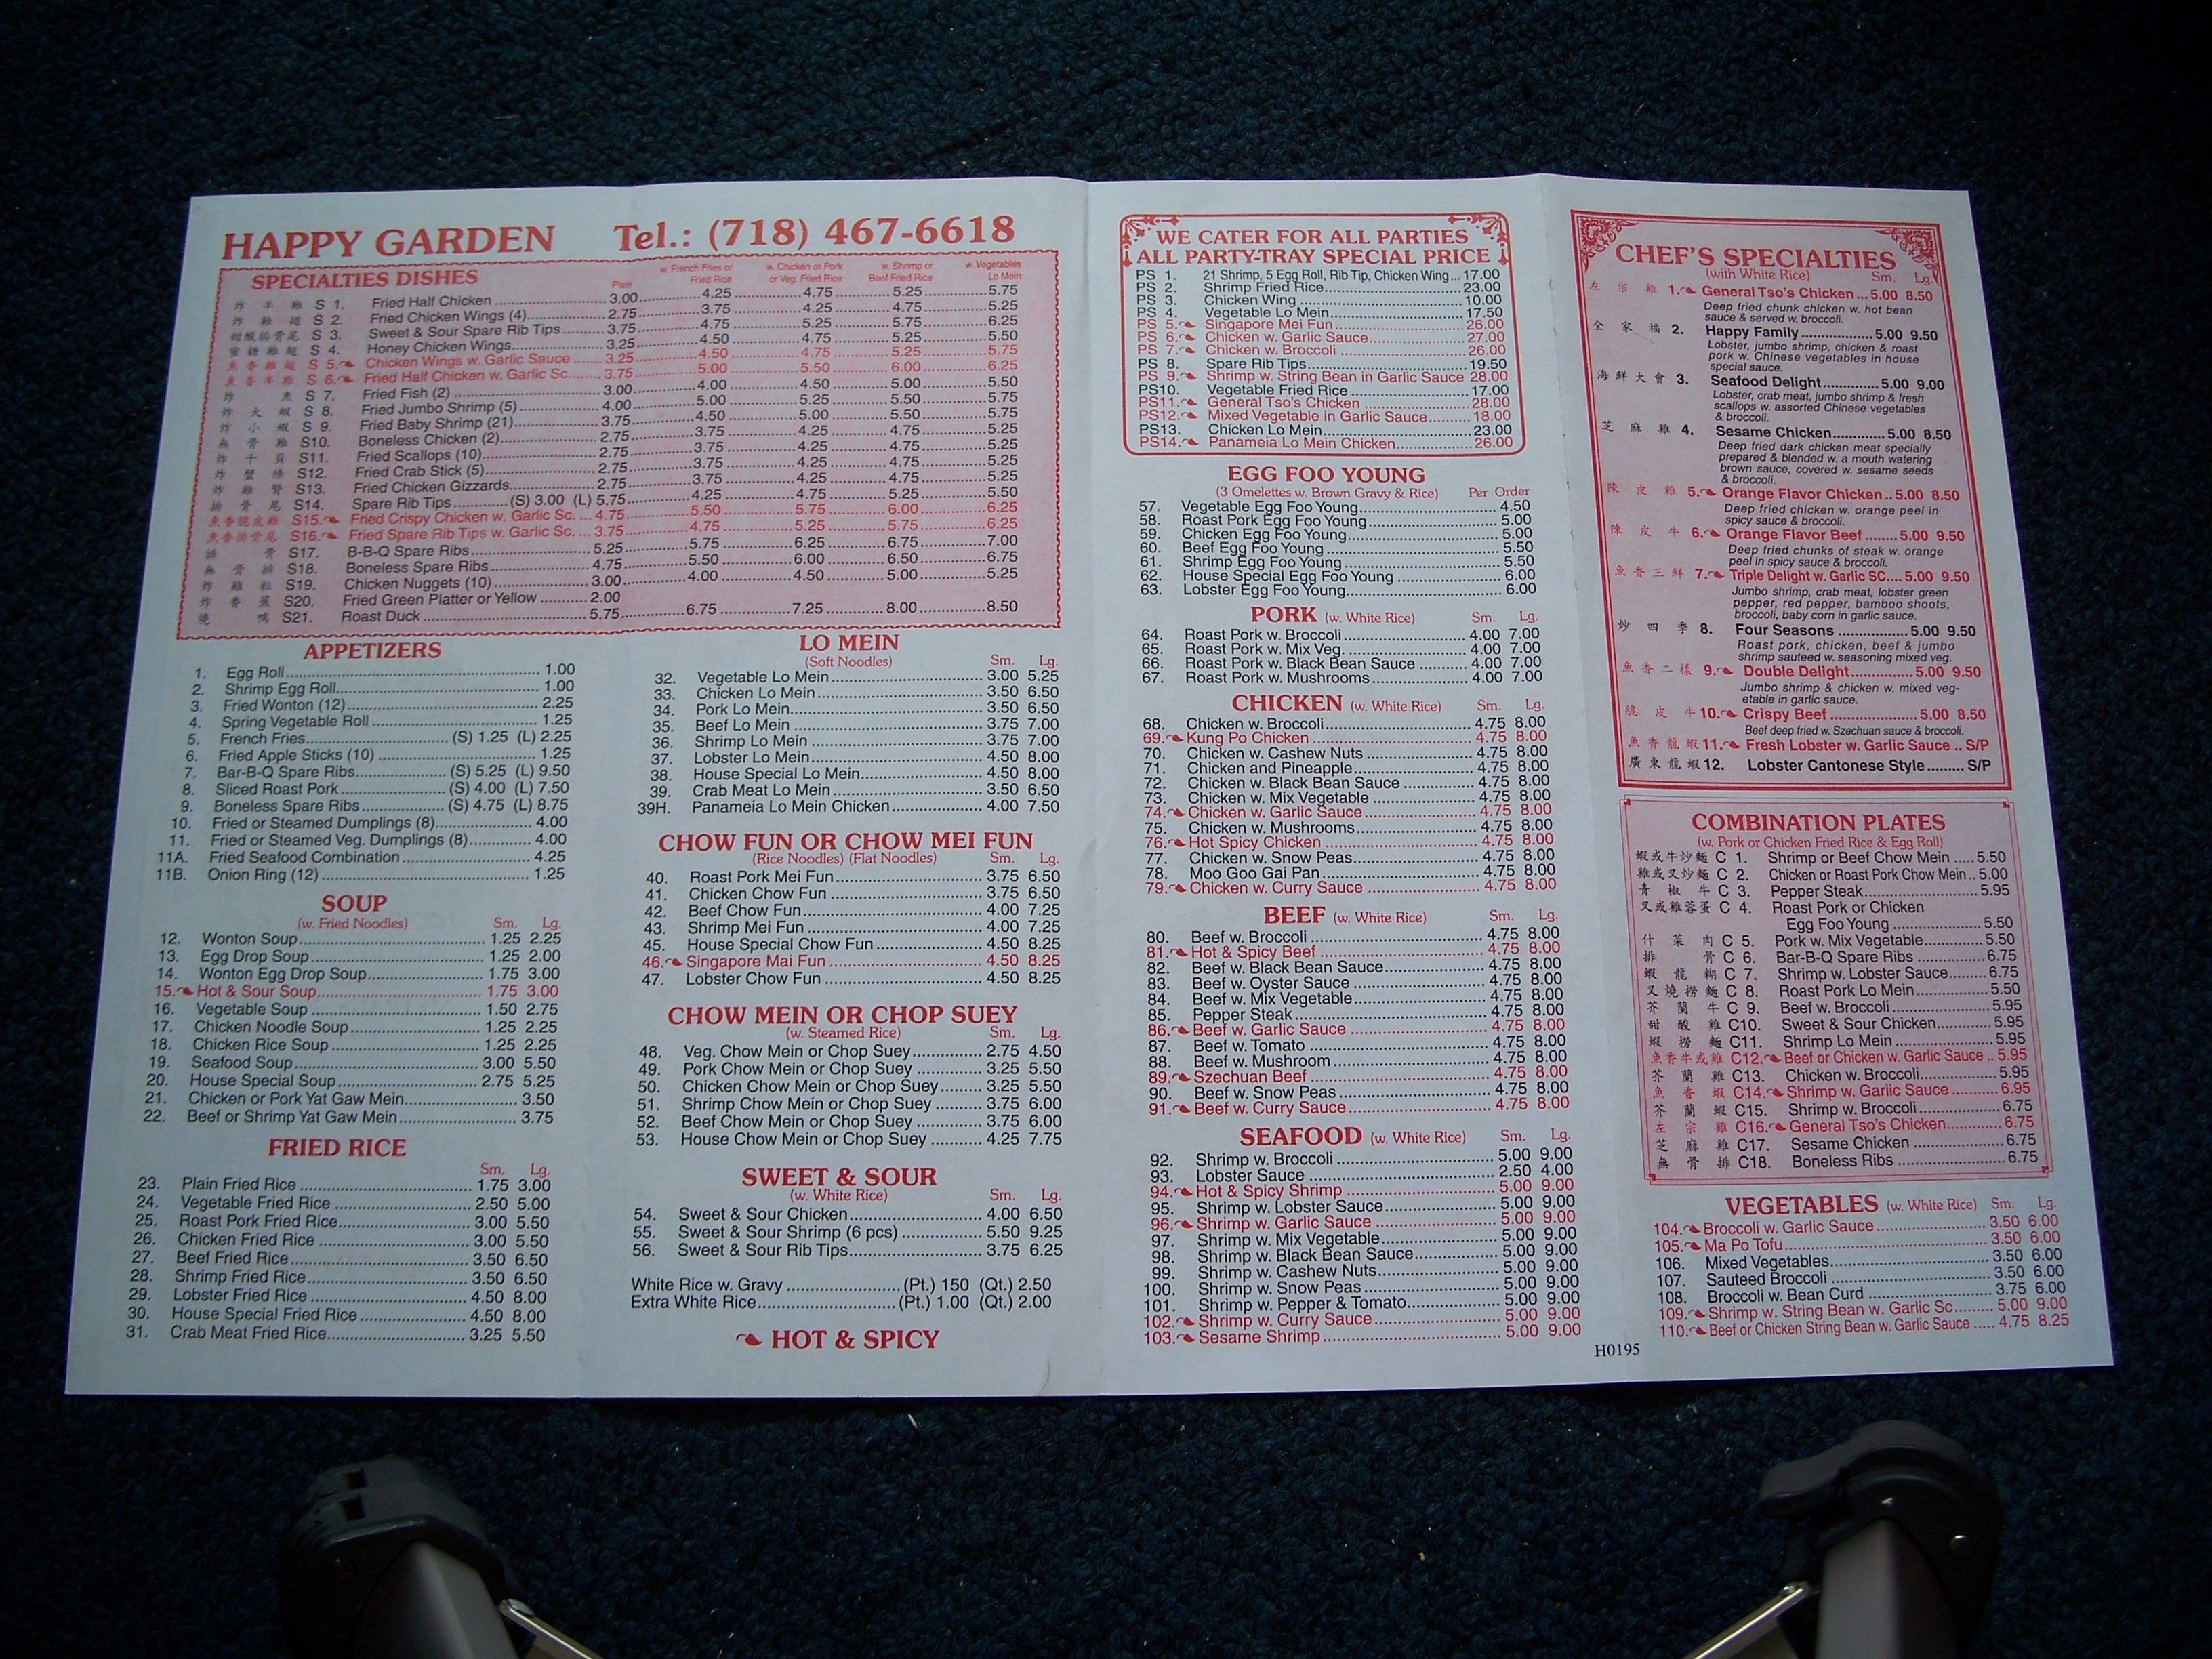 HAPPY GARDEN Tel.: (718) 467-6618
SPECIALTIES DISHES
Plain
w. French Fries or Fried Rice
w. Chicken or Pork or Veg. Fried Rice
w. Shrimp or Beef Fried Rice
w. Vegetables Lo Mein
S 1. Fried Half Chicken 3.00 4.25 4.75 5.25 5.75
S 2. Fried Chicken Wings (4) 2.75 3.75 4.25 4.75 5.25
S 3. Sweet & Sour Spare Rib Tips 3.75 4.75 5.25 5.75 6.25
S 4. Honey Chicken Wings 3.25 4.50 4.75 5.25 5.50
S 5. Chicken Wings w. Garlic Sauce 3.25 4.50 4.75 5.25 5.75
S 6. Fried Half Chicken w. Garlic Sc. 3.75 5.00 5.50 6.00 6.25
S 7. Fried Fish (2) 3.00 4.00 4.50 5.00 5.50
S 8. Fried Jumbo Shrimp (5) 4.00 5.00 5.25 5.50 5.75
S 9. Fried Baby Shrimp (21) 3.75 4.50 5.00 5.50 5.75
S10. Boneless Chicken (2) 2.75 3.75 4.25 4.75 5.25
S11. Fried Scallops (10) 2.75 3.75 4.25 4.75 5.25
S12. Fried Crab Stick (5) 2.75 3.75 4.25 4.75 5.25
S13. Fried Chicken Gizzards 2.75 3.75 4.25 4.75 5.25
S14. Spare Rib Tips (S) 3.00 (L) 5.75 4.25 4.75 5.25 5.50
S15. Fried Crispy Chicken w. Garlic Sc. 4.75 5.50 5.75 6.00 6.25
S16. Fried Spare Rib Tips w. Garlic Sc. 3.75 4.75 5.25 5.75 6.25
S17. B-B-Q Spare Ribs 5.25 5.75 6.25 6.75 7.00
S18. Boneless Spare Ribs 4.75 5.50 6.00 6.50 6.75
S19. Chicken Nuggets (10) 3.00 4.00 4.50 5.00 5.25
S20. Fried Green Platter or Yellow 2.00
S21. Roast Duck 5.75 6.75 7.25 8.00 8.50
APPETIZERS
1. Egg Roll 1.00
2. Shrimp Egg Roll 1.00
3. Fried Wonton (12) 2.25
4. Spring Vegetable Roll 1.25
5. French Fries (S) 1.25 (L) 2.25
6. Fried Apple Sticks (10) 1.25
7. Bar-B-Q Spare Ribs (S) 5.25 (L) 9.50
8. Sliced Roast Pork (S) 4.00 (L) 7.50
9. Boneless Spare Ribs (S) 4.75 (L) 8.75
10. Fried or Steamed Dumplings (8) 4.00
11. Fried or Steamed Veg. Dumplings (8) 4.00
11A. Fried Seafood Combination 4.25
11B. Onion Ring (12) 1.25
SOUP
(w. Fried Noodles) Sm. Lg.
12. Wonton Soup 1.25 2.25
13. Egg Drop Soup 1.25 2.00
14. Wonton Egg Drop Soup 1.75 3.00
15. Hot & Sour Soup 1.75 3.00
16. Vegetable Soup 1.50 2.75
17. Chicken Noodle Soup 1.25 2.25
18. Chicken Rice Soup 1.25 2.25
19. Seafood Soup 3.00 5.50
20. House Special Soup 2.75 5.25
21. Chicken or Pork Yat Gaw Mein 3.50
22. Beef or Shrimp Yat Gaw Mein 3.75
FRIED RICE
Sm. Lg.
23. Plain Fried Rice 1.75 3.00
24. Vegetable Fried Rice 2.50 5.00
25. Roast Pork Fried Rice 3.00 5.50
26. Chicken Fried Rice 3.00 5.50
27. Beef Fried Rice 3.50 6.50
28. Shrimp Fried Rice 3.50 6.50
29. Lobster Fried Rice 4.50 8.00
30. House Special Fried Rice 4.50 8.00
31. Crab Meat Fried Rice 3.25 5.50
LO MEIN
(Soft Noodles) Sm. Lg.
32. Vegetable Lo Mein 3.00 5.25
33. Chicken Lo Mein 3.50 6.50
34. Pork Lo Mein 3.50 6.50
35. Beef Lo Mein 3.75 7.00
36. Shrimp Lo Mein 3.75 7.00
37. Lobster Lo Mein 4.50 8.00
38. House Special Lo Mein 4.50 8.00
39. Crab Meat Lo Mein 3.50 6.50
39H. Panameia Lo Mein Chicken 4.00 7.50
CHOW FUN OR CHOW MEI FUN
(Rice Noodles) (Flat Noodles) Sm. Lg.
40. Roast Pork Mei Fun 3.75 6.50
41. Chicken Chow Fun 3.75 6.50
42. Beef Chow Fun 4.00 7.25
43. Shrimp Mei Fun 4.00 7.25
45. House Special Chow Fun 4.50 8.25
46. Singapore Mai Fun 4.50 8.25
47. Lobster Chow Fun 4.50 8.25
CHOW MEIN OR CHOP SUEY
(w. Steamed Rice) Sm. Lg.
48. Veg. Chow Mein or Chop Suey 2.75 4.50
49. Pork Chow Mein or Chop Suey 3.25 5.50
50. Chicken Chow Mein or Chop Suey 3.25 5.50
51. Shrimp Chow Mein or Chop Suey 3.75 6.00
52. Beef Chow Mein or Chop Suey 3.75 6.00
53. House Chow Mein or Chop Suey 4.25 7.75
SWEET & SOUR
(w. White Rice) Sm. Lg.
54. Sweet & Sour Chicken 4.00 6.50
55. Sweet & Sour Shrimp (6 pcs) 5.50 9.25
56. Sweet & Sour Rib Tips 3.75 6.25
White Rice w. Gravy (Pt.) 150 (Qt.) 2.50
Extra White Rice (Pt.) 1.00 (Qt.) 2.00
HOT & SPICY
WE CATER FOR ALL PARTIES
ALL PARTY-TRAY SPECIAL PRICE
PS 1. 21 Shrimp, 5 Egg Roll, Rib Tip, Chicken Wing 17.00
PS 2. Shrimp Fried Rice 23.00
PS 3. Chicken Wing 10.00
PS 4. Vegetable Lo Mein 17.50
PS 5. Singapore Mei Fun 26.00
PS 6. Chicken w. Garlic Sauce 27.00
PS 7. Chicken w. Broccoli 26.00
PS 8. Spare Rib Tips 19.50
PS 9. Shrimp w. String Bean in Garlic Sauce 28.00
PS10. Vegetable Fried Rice 17.00
PS11. General Tso's Chicken 28.00
PS12. Mixed Vegetable in Garlic Sauce 18.00
PS13. Chicken Lo Mein 23.00
PS14. Panameia Lo Mein Chicken 26.00
EGG FOO YOUNG
(3 Omelettes w. Brown Gravy & Rice) Per Order
57. Vegetable Egg Foo Young 4.50
58. Roast Pork Egg Foo Young 5.00
59. Chicken Egg Foo Young 5.00
60. Beef Egg Foo Young 5.50
61. Shrimp Egg Foo Young 5.50
62. House Special Egg Foo Young 6.00
63. Lobster Egg Foo Young 6.00
PORK (w. White Rice) Sm. Lg.
64. Roast Pork w. Broccoli 4.00 7.00
65. Roast Pork w. Mix Veg. 4.00 7.00
66. Roast Pork w. Black Bean Sauce 4.00 7.00
67. Roast Pork w. Mushrooms 4.00 7.00
CHICKEN (w. White Rice) Sm. Lg.
68. Chicken w. Broccoli 4.75 8.00
69. Kung Po Chicken 4.75 8.00
70. Chicken w. Cashew Nuts 4.75 8.00
71. Chicken and Pineapple 4.75 8.00
72. Chicken w. Black Bean Sauce 4.75 8.00
73. Chicken w. Mix Vegetable 4.75 8.00
74. Chicken w. Garlic Sauce 4.75 8.00
75. Chicken w. Mushrooms 4.75 8.00
76. Hot Spicy Chicken 4.75 8.00
77. Chicken w. Snow Peas 4.75 8.00
78. Moo Goo Gai Pan 4.75 8.00
79. Chicken w. Curry Sauce 4.75 8.00
BEEF (w. White Rice) Sm. Lg.
80. Beef w. Broccoli 4.75 8.00
81. Hot & Spicy Beef 4.75 8.00
82. Beef w. Black Bean Sauce 4.75 8.00
83. Beef w. Oyster Sauce 4.75 8.00
84. Beef w. Mix Vegetable 4.75 8.00
85. Pepper Steak 4.75 8.00
86. Beef w. Garlic Sauce 4.75 8.00
87. Beef w. Tomato 4.75 8.00
88. Beef w. Mushroom 4.75 8.00
89. Szechuan Beef 4.75 8.00
90. Beef w. Snow Peas 4.75 8.00
91. Beef w. Curry Sauce 4.75 8.00
SEAFOOD (w. White Rice) Sm. Lg.
92. Shrimp w. Broccoli 5.00 9.00
93. Lobster Sauce 2.50 4.00
94. Hot & Spicy Shrimp 5.00 9.00
95. Shrimp w. Lobster Sauce 5.00 9.00
96. Shrimp w. Garlic Sauce 5.00 9.00
97. Shrimp w. Mix Vegetable 5.00 9.00
98. Shrimp w. Black Bean Sauce 5.00 9.00
99. Shrimp w. Cashew Nuts 5.00 9.00
100. Shrimp w. Snow Peas 5.00 9.00
101. Shrimp w. Pepper & Tomato 5.00 9.00
102. Shrimp w. Curry Sauce 5.00 9.00
103. Sesame Shrimp 5.00 9.00
CHEF'S SPECIALTIES
(with White Rice) Sm. Lg.
左宗雞 1. General Tso's Chicken 5.00 8.50
Deep fried chunk chicken w. hot bean
sauce & served w. broccoli.
全家福 2. Happy Family 5.00 9.50
Lobster, jumbo shrimp, chicken & roast
pork w. Chinese vegetables in house
special sauce.
海鮮大會 3. Seafood Delight 5.00 9.00
Lobster, crab meat, jumbo shrimp & fresh
scallops w. assorted Chinese vegetables
& broccoli.
芝麻雞 4. Sesame Chicken 5.00 8.50
Deep fried dark chicken meat specially
prepared & blended w. a mouth watering
brown sauce, covered w. sesame seeds
& broccoli.
陳皮雞 5. Orange Flavor Chicken 5.00 8.50
Deep fried chicken w. orange peel in
spicy sauce & broccoli.
陳皮牛 6. Orange Flavor Beef 5.00 9.50
Deep fried chunks of steak w. orange
peel in spicy sauce & broccoli.
魚香三鮮 7. Triple Delight w. Garlic SC. 5.00 9.50
Jumbo shrimp, crab meat, lobster green
pepper, red pepper, bamboo shoots,
broccoli, baby corn in garlic sauce.
炒四季 8. Four Seasons 5.00 9.50
Roast pork, chicken, beef & jumbo
shrimp sauteed w. seasoning mixed veg.
魚香二樣 9. Double Delight 5.00 9.50
Jumbo shrimp & chicken w. mixed veg-
etable in garlic sauce.
脆皮牛 10. Crispy Beef 5.00 8.50
Beef deep fried w. Szechuan sauce & broccoli.
魚香龍蝦 11. Fresh Lobster w. Garlic Sauce S/P
廣東龍蝦 12. Lobster Cantonese Style S/P
COMBINATION PLATES
(w. Pork or Chicken Fried Rice & Egg Roll)
蝦或牛炒麵 C 1. Shrimp or Beef Chow Mein 5.50
雞或叉炒麵 C 2. Chicken or Roast Pork Chow Mein 5.00
青椒牛 C 3. Pepper Steak 5.95
叉或雞蓉蛋 C 4. Roast Pork or Chicken
Egg Foo Young 5.50
什菜肉 C 5. Pork w. Mix Vegetable 5.50
排骨 C 6. Bar-B-Q Spare Ribs 6.75
蝦龍糊 C 7. Shrimp w. Lobster Sauce 6.75
叉燒撈麵 C 8. Roast Pork Lo Mein 5.50
芥蘭牛 C 9. Beef w. Broccoli 5.95
甜酸雞 C10. Sweet & Sour Chicken 5.95
蝦撈麵 C11. Shrimp Lo Mein 5.95
魚香牛或雞 C12. Beef or Chicken w. Garlic Sauce 5.95
芥蘭雞 C13. Chicken w. Broccoli 5.95
魚香蝦 C14. Shrimp w. Garlic Sauce 6.95
芥蘭蝦 C15. Shrimp w. Broccoli 6.75
左宗雞 C16. General Tso's Chicken 6.75
芝麻雞 C17. Sesame Chicken 6.75
無骨排 C18. Boneless Ribs 6.75
VEGETABLES (w. White Rice) Sm. Lg.
104. Broccoli w. Garlic Sauce 3.50 6.00
105. Ma Po Tofu 3.50 6.00
106. Mixed Vegetables 3.50 6.00
107. Sauteed Broccoli 3.50 6.00
108. Broccoli w. Bean Curd 3.75 6.00
109. Shrimp w. String Bean w. Garlic Sc. 5.00 9.00
110. Beef or Chicken String Bean w. Garlic Sauce 4.75 8.25
H0195